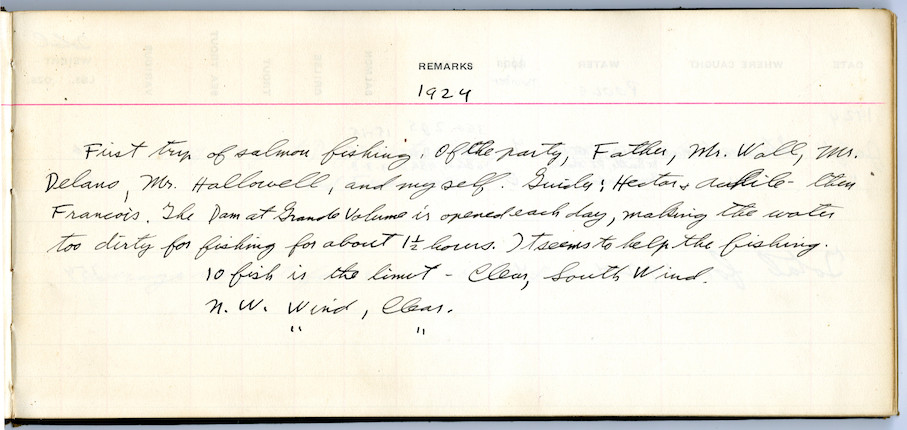 REMARKS
1924
First trip of salmon fishing. Of the party, Father, Mr. Wall, Mr.
Delano, Mr. Hallowell, and myself. Guides; Hector & then
Francois. The Dam at Grande Volume is opened each day, making the water
too dirty for fishing for about 1½ hours. It seems to help the fishing.
10 fish is the limit - Clear, South Wind.
N. W. Wind, Clear.
" "